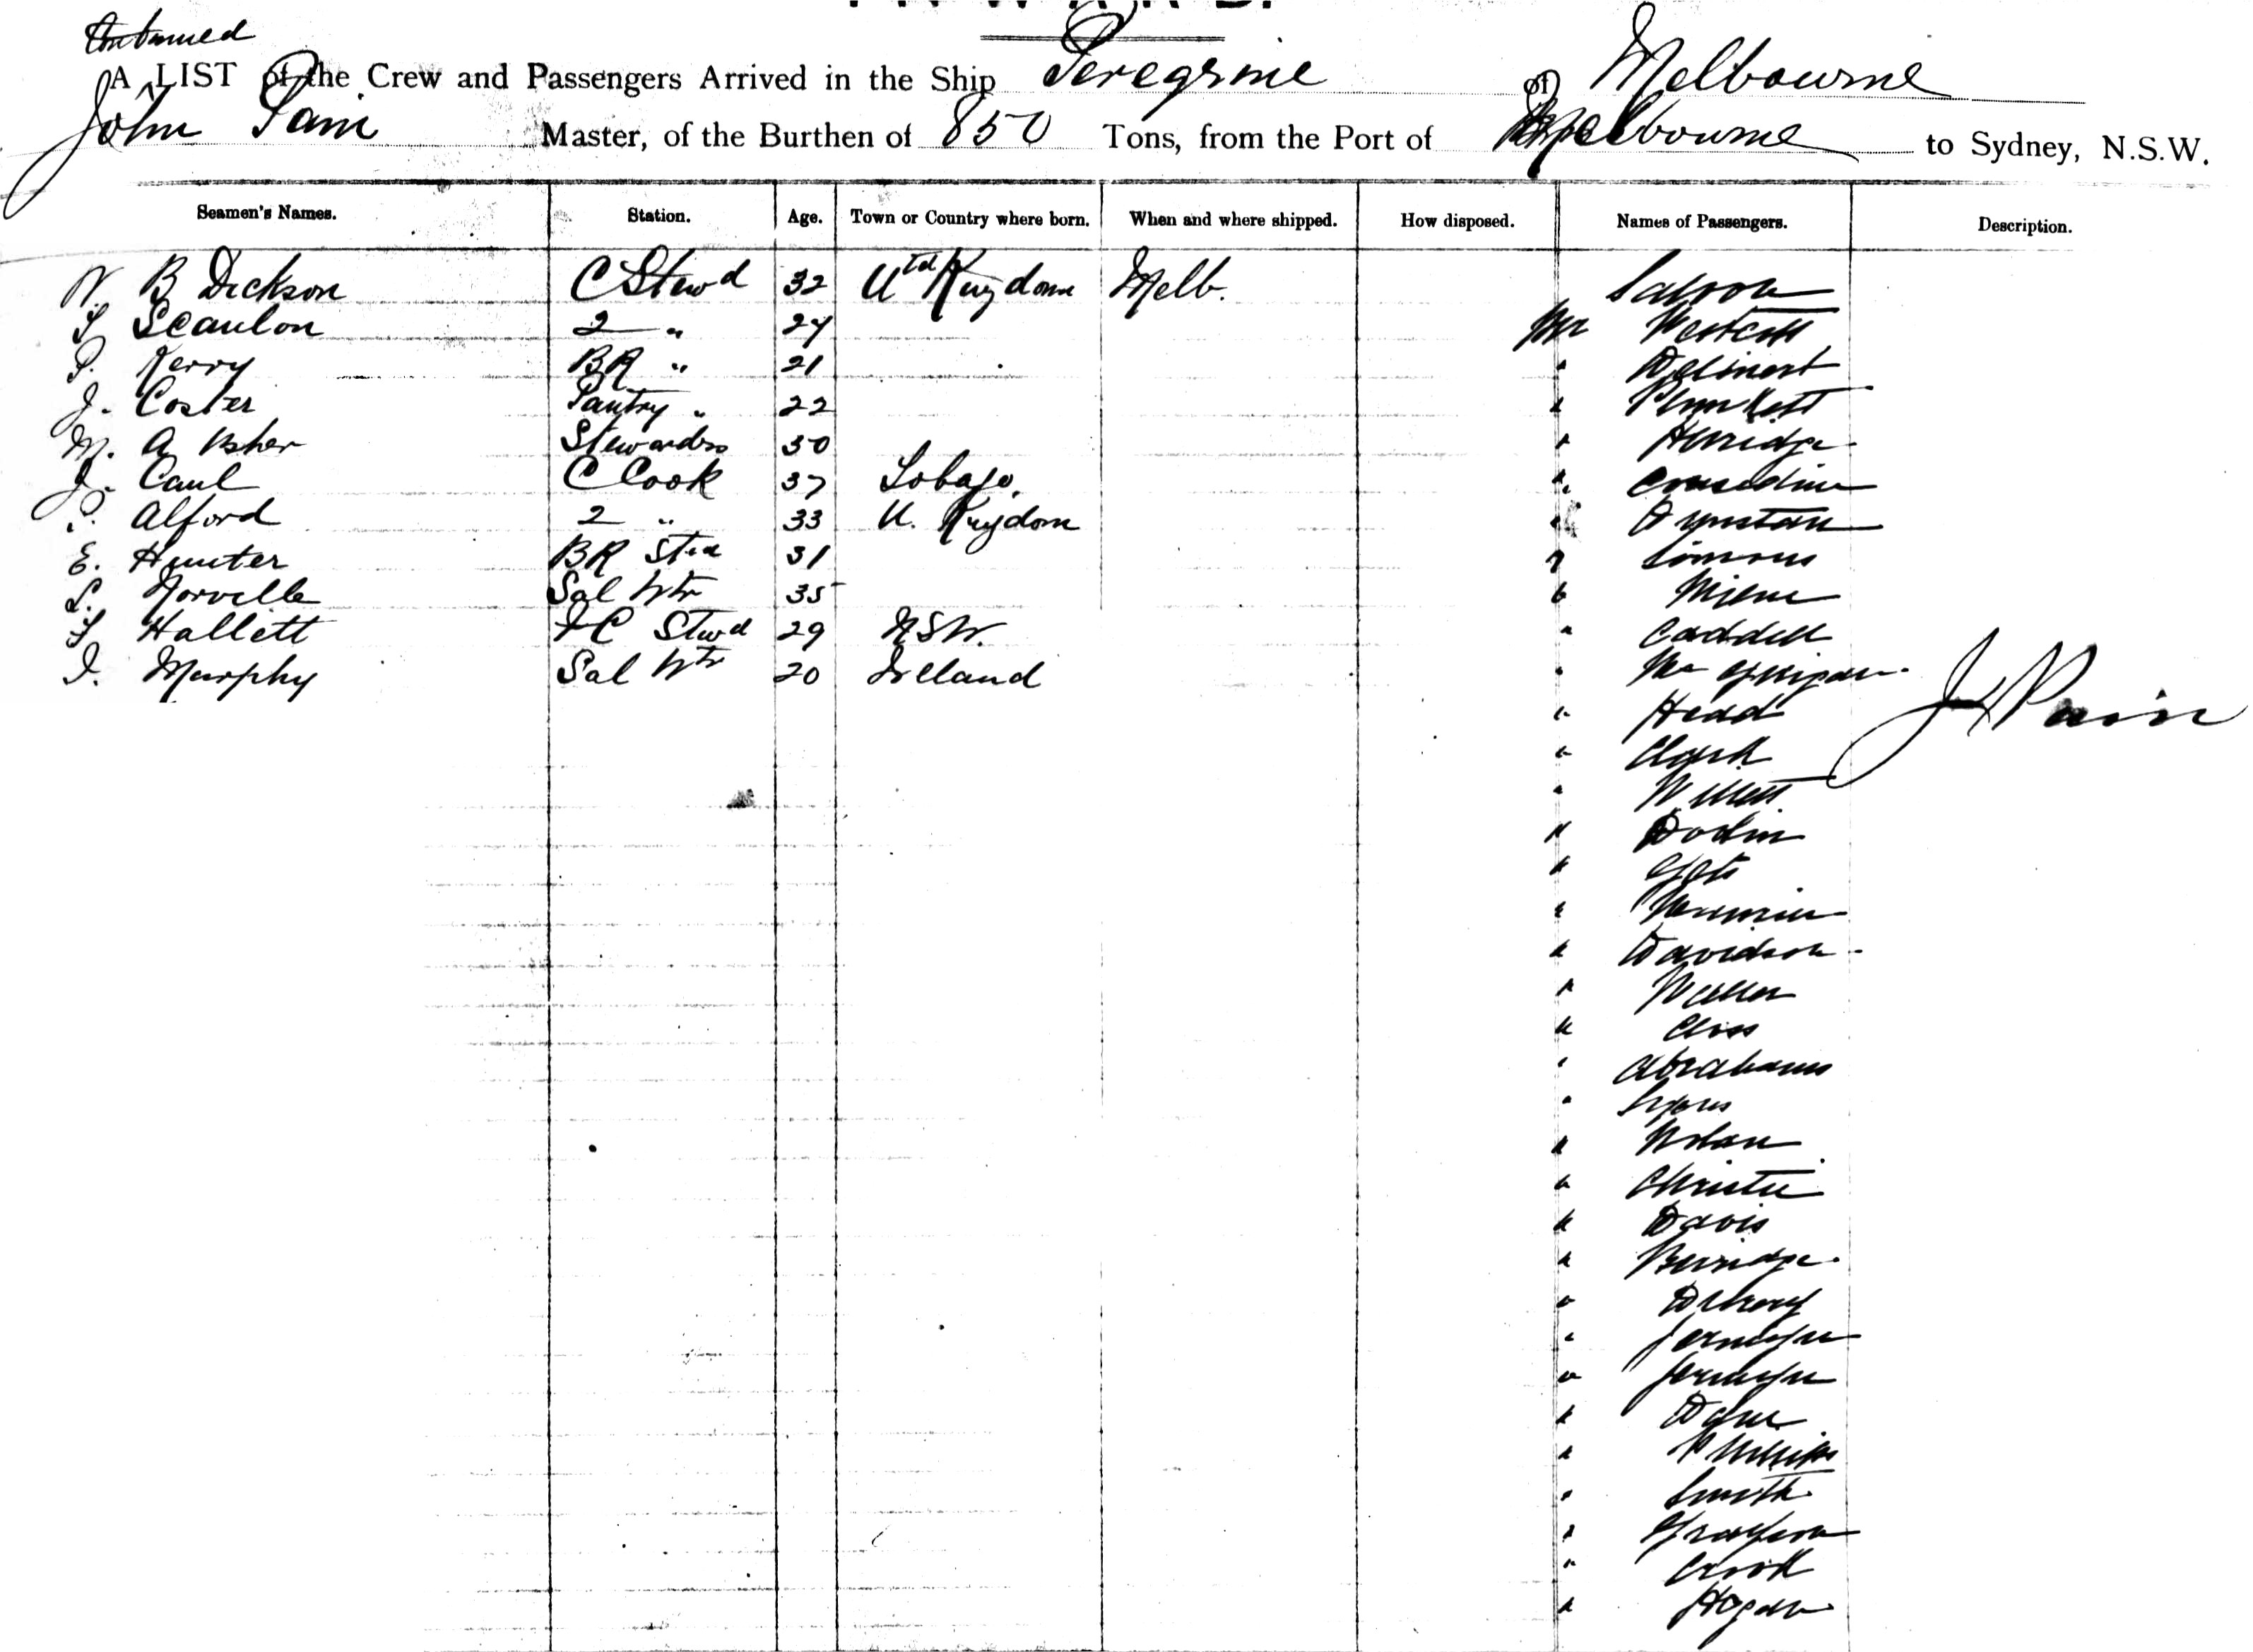 Continued
A LIST of the Crew and Passengers Arrived in the Ship Peregrine of Melbourne
John Pain Master, of the Burthen of 850 Tons, from the Port of Melbourne to Sydney, N.S.W.
Seamen's Names. Station. Age. Town or Country where born. When and where shipped. How disposed. Names of Passengers. Description.
W. B Dickson C Stewd 32 Utd Kingdom Melb. Saloon
Scanlon 2 " 24 Mr Westcott
P. Kerry BR " 21 "
J. Coster Pantry " 22 " Plunkett
M. A Usher Stewardess 30 "
J. Caul C Cook 37 Tobago. " Considine
Alford 2 " 33 U. Kingdom " Dunstan
E. Hunter BR Std 31 " Simmons
Norville Sal Wtr 35 " Milne
Hallett Stwd 29 NSW. " Caddell
Murphy Sal Wtr 20 Ireland "
" Head
J Pain
" Clark
" Willett
" Dodin
"
"
" Davidson
" Waller
" Cliss
" Abrahams
" Lyons
" Nolan
" Christie
" Davis
" Berridge
"
" Jermyn
" Jermyn
"
" Phillips
" Smith
" Grayson
" Crook
" Hogan